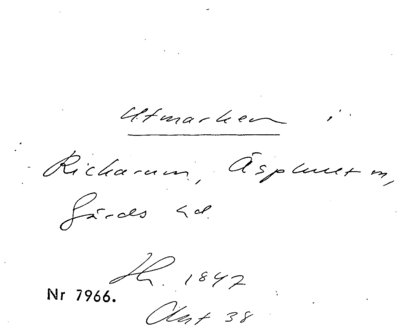 Utmarken i
Rickarum, Äsphult sn,
Gärds hd.
Hr. 1847
Nr 7966.
Akt 38